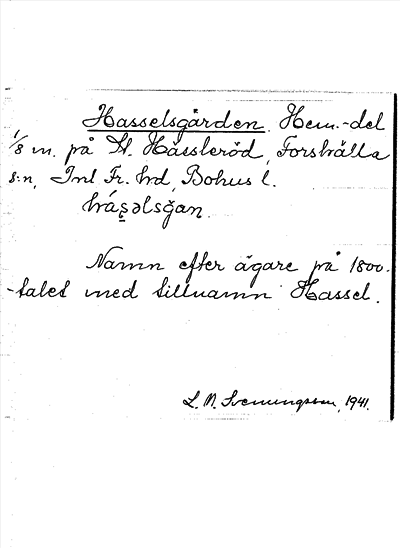 Hasselsgården. Hem.-del
1/8 m. på St. Hässleröd, Forshälla
s:n, Inl. Fr. hd, Bohus l.
hásəlsğan.
Namn efter ägare på 1800-
-talet med tillnamn Hassel.
L. M. Svenungsson, 1941.